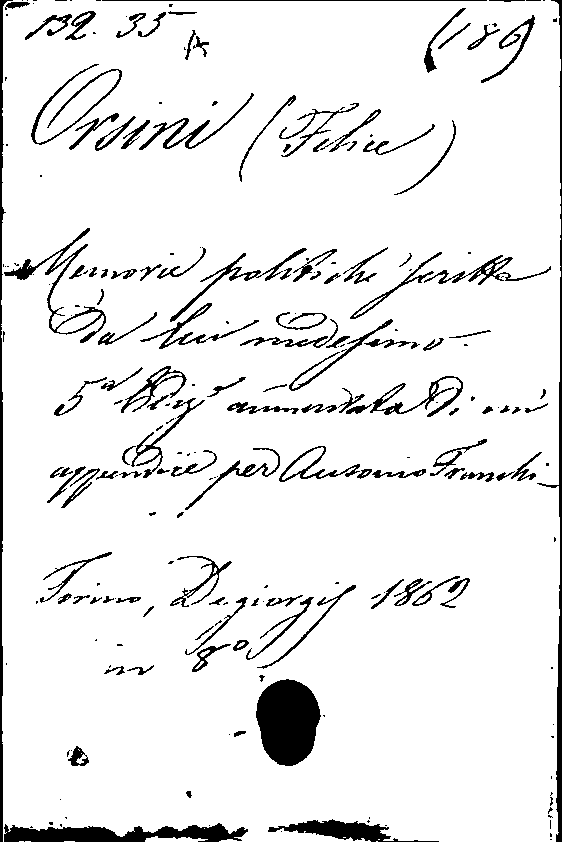 132. 35 A (186)
Orsini (Felice)
Memorie politiche scritte
da lui medesimo.
5a Ediz.e aumentata di un'
appendice per Ausonio Franchi
Torino, Degiorgis 1862
in 8o